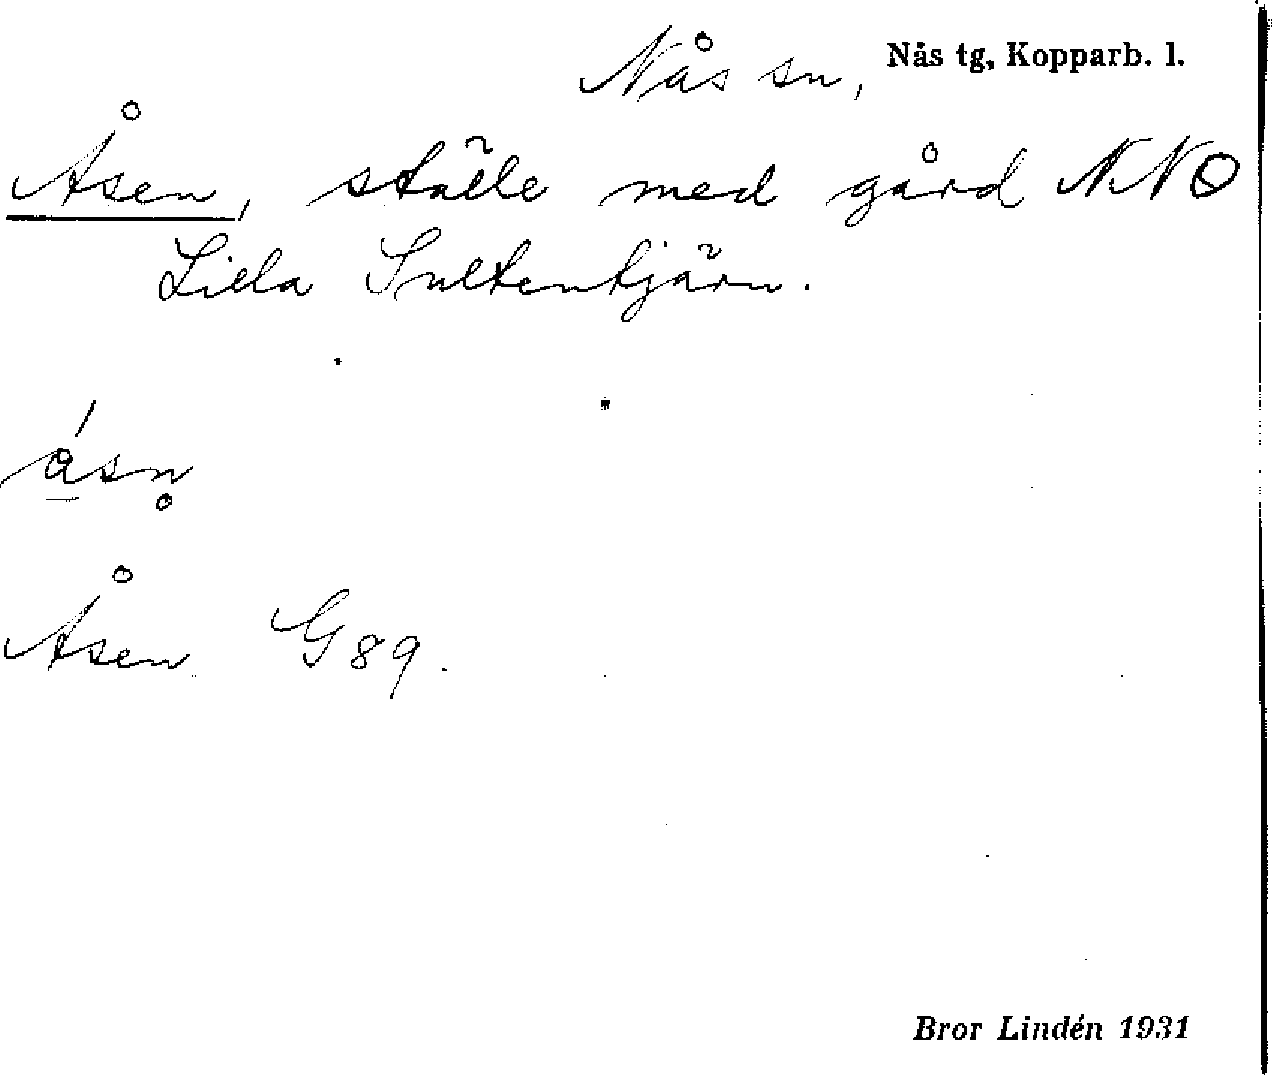 Nås sn, Nås tg, Kopparb. l.
Åsen, ställe med gård NNO
Lilla Sultentjärn.
ǻsn̥
Åsen G89.
Bror Lindén 1931